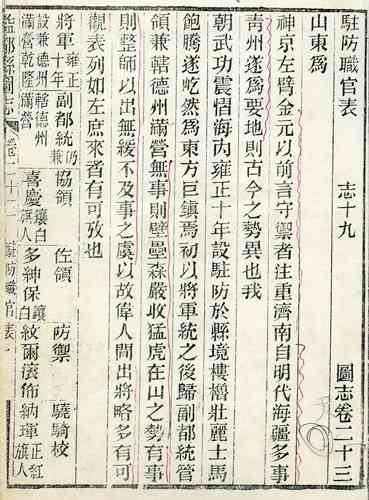 駐防職官表 志十九 圖志卷二十三
山東為
神京左臂金元以前言守禦者注重濟南自明代海疆多事
青州遂為要地則古今之勢異也我
朝武功震慴海內雍正十年設駐防於縣境樓櫓壯麗士馬
飽騰遂屹然為東方巨鎮焉初以將軍統之後歸副都統管
領兼轄德州滿營無事則壁壘森嚴收猛虎在山之勢有事
則整師以出無緩不及事之虞以故偉人間出將略多有可
觀表列如左庶來者有可攷也
將軍雍正十年副都統仍兼協領 佐領 防禦 驍騎校
設兼德州轄德州
滿營乾隆滿營 喜慶鑲白旗人多紳保鑲白紋爾滾佈納琿正紅旗人
益都縣圖志 卷二十三 駐防職官表 一